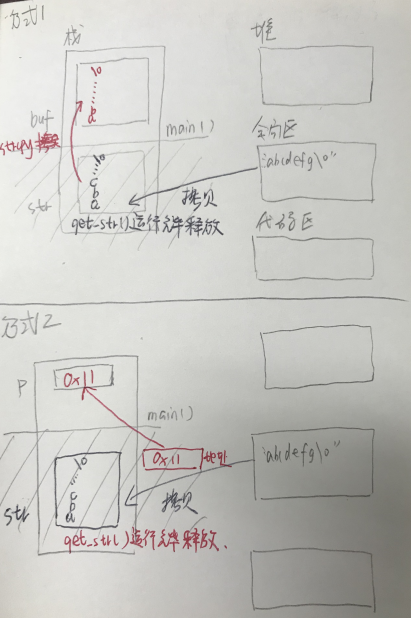 方式1
栈
堆
\0
......
a
buf
strcpy拷贝
main()
全局区
\0
......
c
b
a
"abcdefg\0"
拷贝
str
get_str()运行完毕释放
代码区
方式2
P
0x11
main()
0x11
地址
"abcdefg\0"
\0
......
c
b
a
拷贝
str
get_str()运行完毕释放.